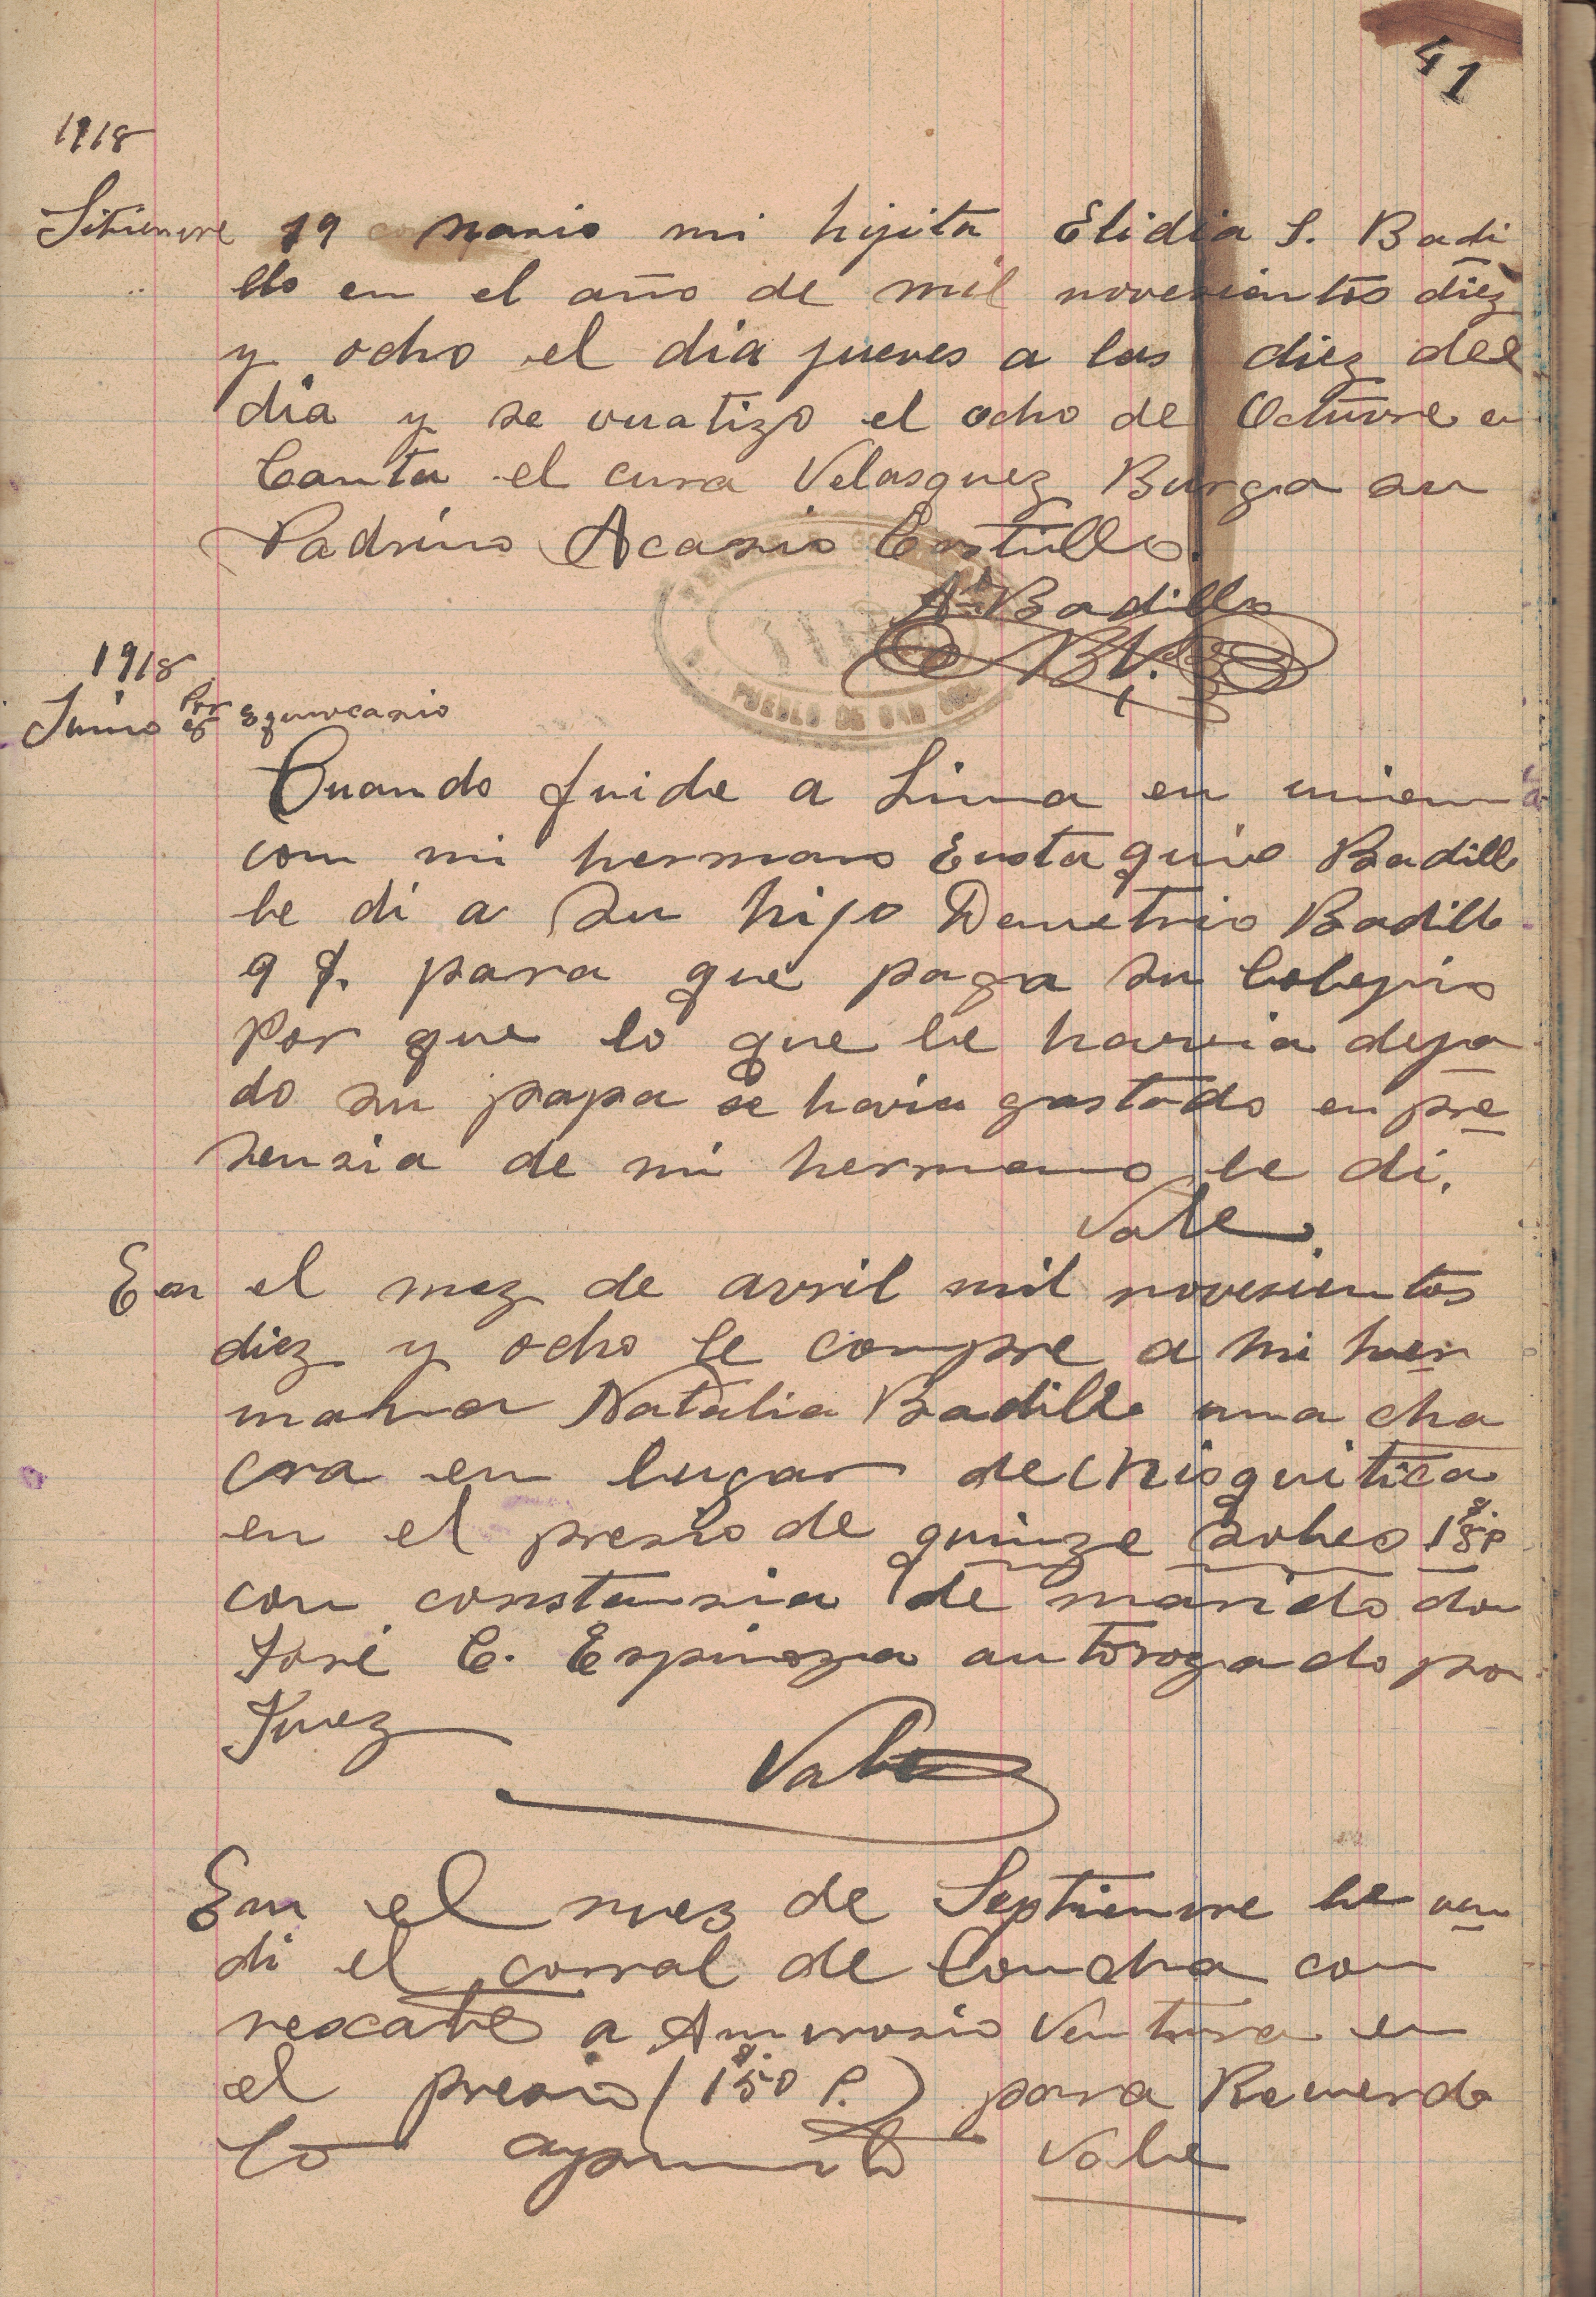 41
1918
Sitienvre 19 nasio mi hijita Elidia S. Badi
llo en el año de mil novesientos diez
y ocho el dia jueves a las diez del
dia y se vuatizo el ocho de Octuvre en
Canta el cura Velasquez Burga su
Padrino Acasio Castillo.
An Badillo
B V.
PUEBLO DE SAN
1918
Junio Por Equivocasio
Cuando fuide a Lima en union
con mi hermano Eustaquio Badillo
le di a su hijo Demetrio Badillo
9 S. para que paga su Colegio
Por que lo que le havia deja
do su papa se havia gastado en pre
sensia de mi hermano le di.
Vale
En el mez de avril mil novesientos
diez y ocho le compre a mi her
mana Natalia Badillo una cha
cra en lugar de Chisquitica
en el presio de quinze soles 15 S. P
con constansia de marido don
José C. Espinoza autorogado por
Juez
Vale
En el mez de Septienvre le ven
di el corral de Concha con
rescate a Amvrosio Ventura en
el presio (1 S. 50 P.) para Recuerdo
lo apunto Vale